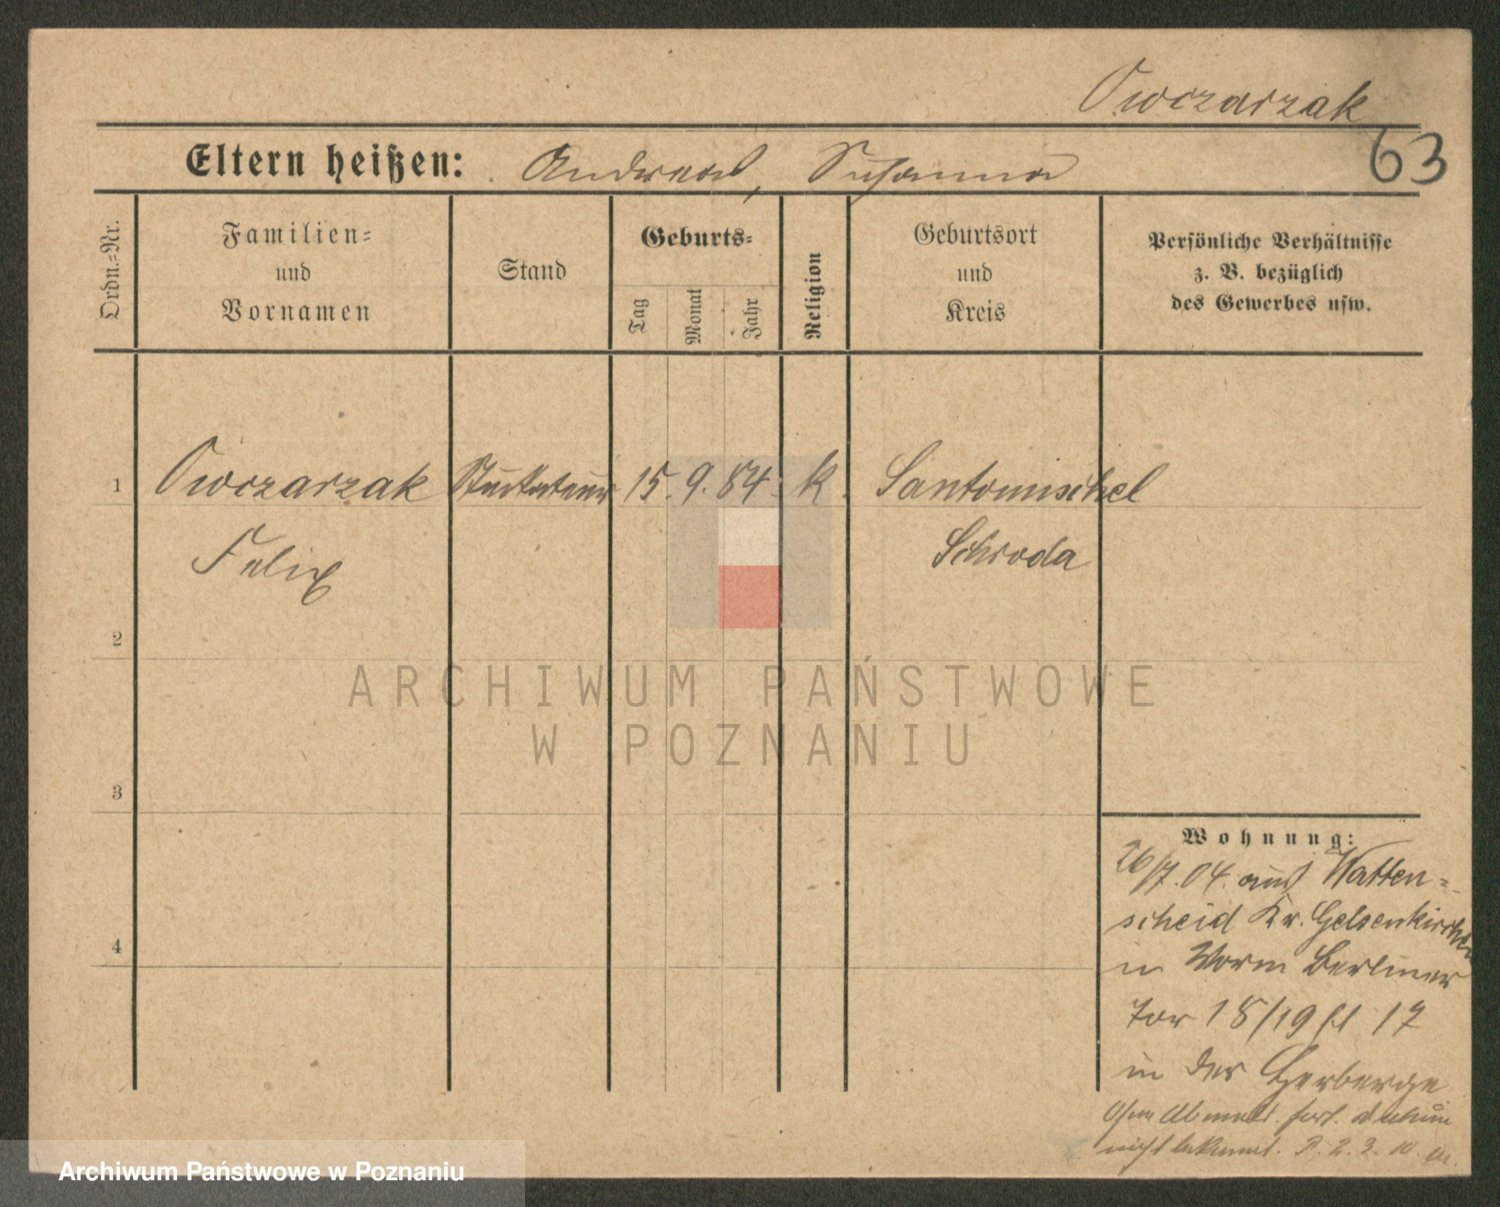 Owczarzak
63
Eltern heißen: Andreas, Susanna
Ordn.=Nr.
Familien=
und
Vornamen
Stand
Geburts=
Tag
Monat
Jahr
Religion
Geburtsort
und
Kreis
Persönliche Verhältnisse
z. B. bezüglich
des Gewerbes usw.
1 Owczarzak Stuckateur 15. 9. 84. k. Santomischel
Felix Schroda
2
ARCHIWUM PAŃSTWOWE
W POZNANIU
3
Wohnung:
26/7. 04. aus Watten=
scheid Kr. Gelsenkirchen
in Worm Berliner
Tor 18/19 17
in der Herberge
Ohne Abmeld. fort.
nicht bekannt. P. 2. 3.
4
Archiwum Państwowe w Poznaniu